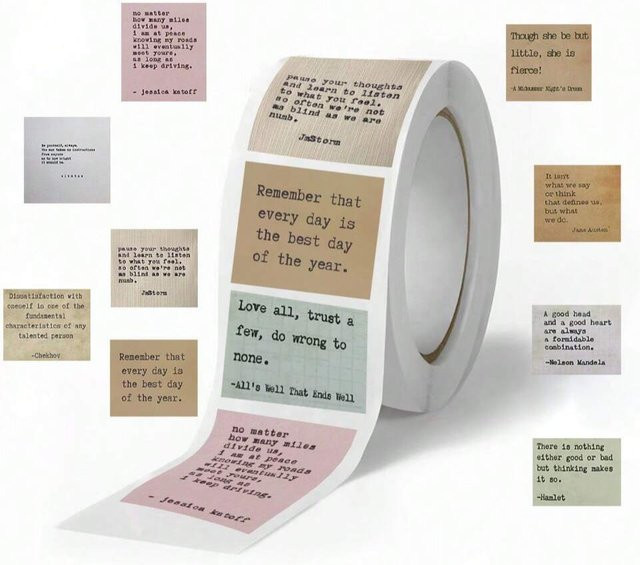 no matter
how many miles
divide us,
i am at peace
knowing my roads
will eventually
meet yours,
as long as
i keep driving.
- jessica katoff
Though she be but
little, she is
fierce!
-A Midsummer Night's Dream
pause your thoughts
and learn to listen
to what you feel.
so often we're not
as blind as we are
numb.
JmStorm
Remember that
every day is
the best day
of the year.
Love all, trust a
few, do wrong to
none.
-All's Well That Ends Well
no matter
how many miles
divide us,
i am at peace
knowing my roads
will eventually
meet yours,
as long as
i keep driving.
- jessica katoff
Be yourself, always.
It isn't
what we say
or think
that defines us,
but what
we do.
Jane Austen
pause your thoughts
and learn to listen
to what you feel.
so often we're not
as blind as we are
numb.
JmStorm
Dissatisfaction with
oneself is one of the
fundamental
characteristics of any
talented person
-Chekhov
Remember that
every day is
the best day
of the year.
A good head
and a good heart
are always
a formidable
combination.
-Nelson Mandela
There is nothing
either good or bad
but thinking makes
it so.
-Hamlet